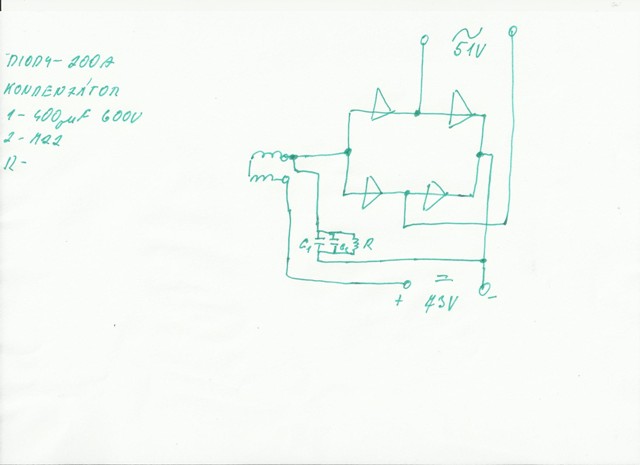 DIODY - 200A
KONDENZÁTOR
1 - 400µF 600V
2 - M22
R -
~
51V
C1
C2
R
+
=
73V
-